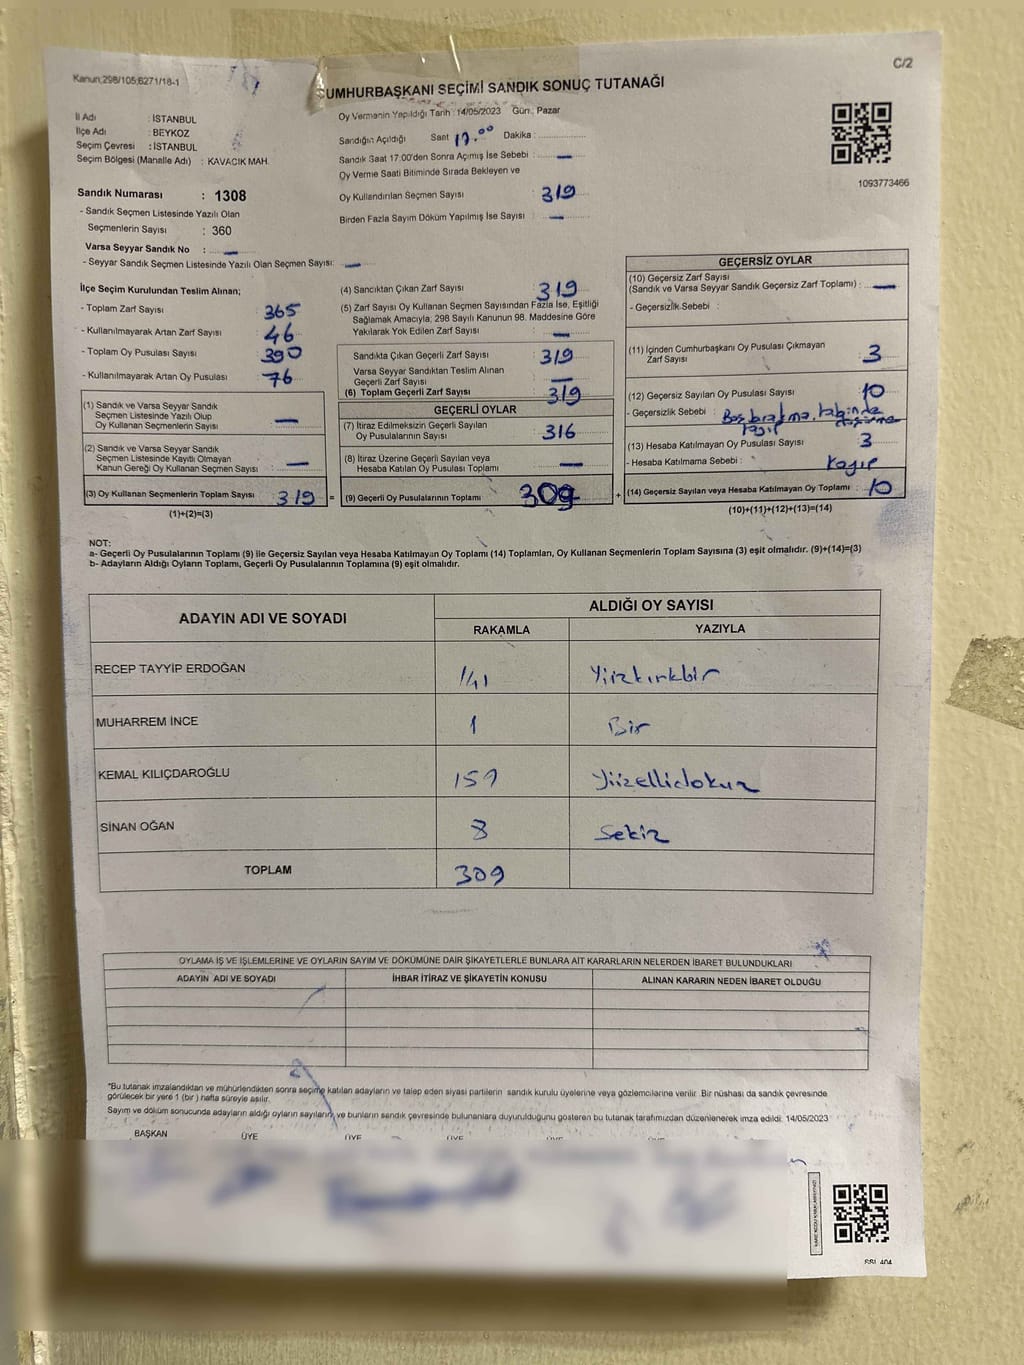 Kanun;298/105;6271/18-1
C/2
CUMHURBAŞKANI SEÇİMİ SANDIK SONUÇ TUTANAĞI
İl Adı : İSTANBUL
İlçe Adı : BEYKOZ
Seçim Çevresi : İSTANBUL
Seçim Bölgesi (Mahalle Adı) : KAVACIK MAH.
Sandık Numarası : 1308
- Sandık Seçmen Listesinde Yazılı Olan
Seçmenlerin Sayısı : 360
Varsa Seyyar Sandık No : —
- Seyyar Sandık Seçmen Listesinde Yazılı Olan Seçmen Sayısı: —
Oy Vermenin Yapıldığı Tarih : 14/05/2023 Gün : Pazar
Sandığın Açıldığı Saat 17.00 Dakika :
Sandık Saat 17:00'den Sonra Açılmış İse Sebebi : —
Oy Verme Saati Bitiminde Sırada Bekleyen ve
Oy Kullandırılan Seçmen Sayısı : 319
Birden Fazla Sayım Döküm Yapılmış İse Sayısı : —
1093773466
İlçe Seçim Kurulundan Teslim Alınan;
- Toplam Zarf Sayısı : 365
- Kullanılmayarak Artan Zarf Sayısı : 46
- Toplam Oy Pusulası Sayısı : 390
- Kullanılmayarak Artan Oy Pusulası : 76
(1) Sandık ve Varsa Seyyar Sandık
Seçmen Listesinde Yazılı Olup
Oy Kullanan Seçmenlerin Sayısı : —
(2) Sandık ve Varsa Seyyar Sandık
Seçmen Listesinde Kayıtlı Olmayan
Kanun Gereği Oy Kullanan Seçmen Sayısı : —
(3) Oy Kullanan Seçmenlerin Toplam Sayısı : 319 =
(1)+(2)=(3)
(4) Sandıktan Çıkan Zarf Sayısı : 319
(5) Zarf Sayısı Oy Kullanan Seçmen Sayısından Fazla İse, Eşitliği
Sağlamak Amacıyla; 298 Sayılı Kanunun 98. Maddesine Göre
Yakılarak Yok Edilen Zarf Sayısı : —
Sandıkta Çıkan Geçerli Zarf Sayısı : 319
Varsa Seyyar Sandıktan Teslim Alınan
Geçerli Zarf Sayısı : —
(6) Toplam Geçerli Zarf Sayısı : 319
GEÇERLİ OYLAR
(7) İtiraz Edilmeksizin Geçerli Sayılan
Oy Pusulalarının Sayısı : 316
(8) İtiraz Üzerine Geçerli Sayılan veya
Hesaba Katılan Oy Pusulası Toplamı : —
(9) Geçerli Oy Pusulalarının Toplamı : 309 +
GEÇERSİZ OYLAR
(10) Geçersiz Zarf Sayısı
(Sandık ve Varsa Seyyar Sandık Geçersiz Zarf Toplamı) : —
- Geçersizlik Sebebi :
(11) İçinden Cumhurbaşkanı Oy Pusulası Çıkmayan
Zarf Sayısı : 3
(12) Geçersiz Sayılan Oy Pusulası Sayısı : 10
- Geçersizlik Sebebi : Boş bırakma,
(13) Hesaba Katılmayan Oy Pusulası Sayısı : 3
- Hesaba Katılmama Sebebi : Kayıp
(14) Geçersiz Sayılan veya Hesaba Katılmayan Oy Toplamı : 10
(10)+(11)+(12)+(13)=(14)
NOT:
a- Geçerli Oy Pusulalarının Toplamı (9) ile Geçersiz Sayılan veya Hesaba Katılmayan Oy Toplamı (14) Toplamları, Oy Kullanan Seçmenlerin Toplam Sayısına (3) eşit olmalıdır. (9)+(14)=(3)
b- Adayların Aldığı Oyların Toplamı, Geçerli Oy Pusulalarının Toplamına (9) eşit olmalıdır.
ADAYIN ADI VE SOYADI
ALDIĞI OY SAYISI
RAKAMLA YAZIYLA
RECEP TAYYİP ERDOĞAN 141 Yüzkırkbir
MUHARREM İNCE 1 Bir
KEMAL KILIÇDAROĞLU 159 Yüzellidokuz
SİNAN OĞAN 8 Sekiz
TOPLAM 309
OYLAMA İŞ VE İŞLEMLERİNE VE OYLARIN SAYIM VE DÖKÜMÜNE DAİR ŞİKAYETLERLE BUNLARA AİT KARARLARIN NELERDEN İBARET BULUNDUKLARI
ADAYIN ADI VE SOYADI İHBAR İTİRAZ VE ŞİKAYETİN KONUSU ALINAN KARARIN NEDEN İBARET OLDUĞU
*Bu tutanak imzalandıktan ve mühürlendikten sonra seçime katılan adayların ve talep eden siyasi partilerin sandık kurulu üyelerine veya gözlemcilerine verilir. Bir nüshası da sandık çevresinde
görülecek bir yere 1 (bir ) hafta süreyle asılır.
Sayım ve döküm sonucunda adayların aldığı oyların sayıların, ve bunların sandık çevresinde bulunanlara duyurulduğunu gösteren bu tutanak tarafımızdan düzenlenerek imza edildi: 14/05/2023
BAŞKAN ÜYE ÜYE ÜYE